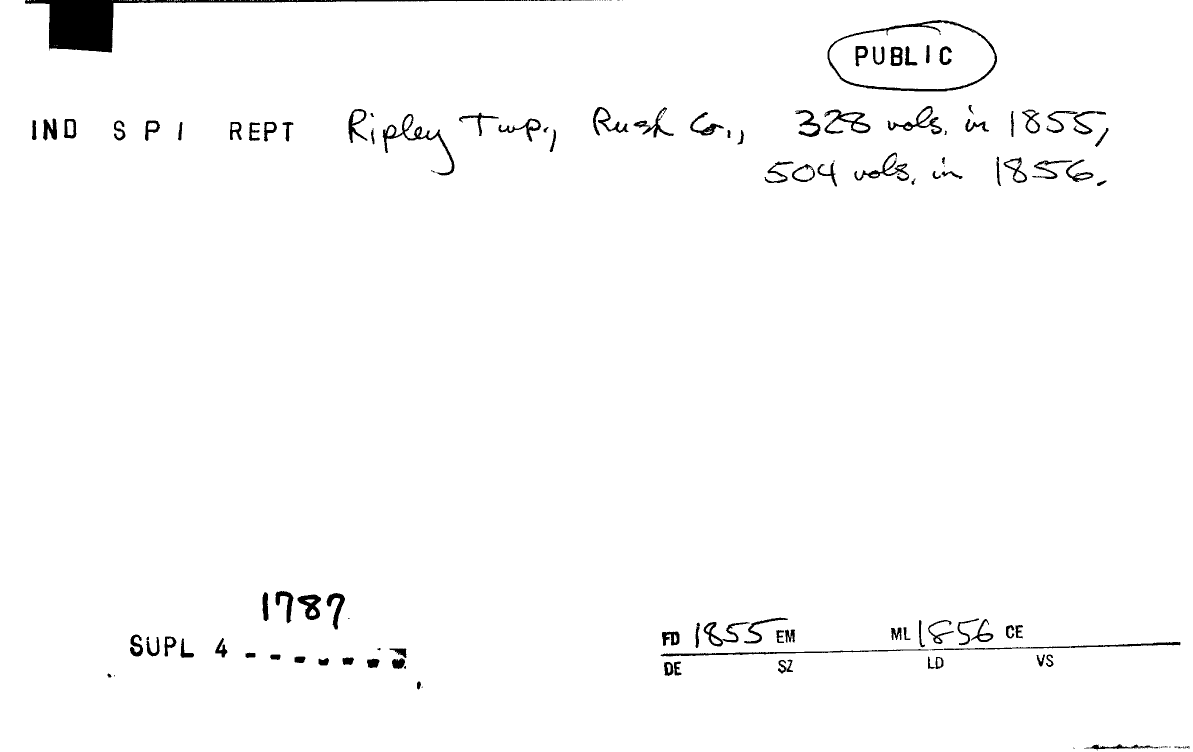 PUBLIC
IND S P I REPT Ripley Twp., Rush Co., 328 vols. in 1855,
504 vols. in 1856.
1787
SUPL 4 - - - - - - -
FD 1855 EM ML 1856 CE
DE SZ LD VS